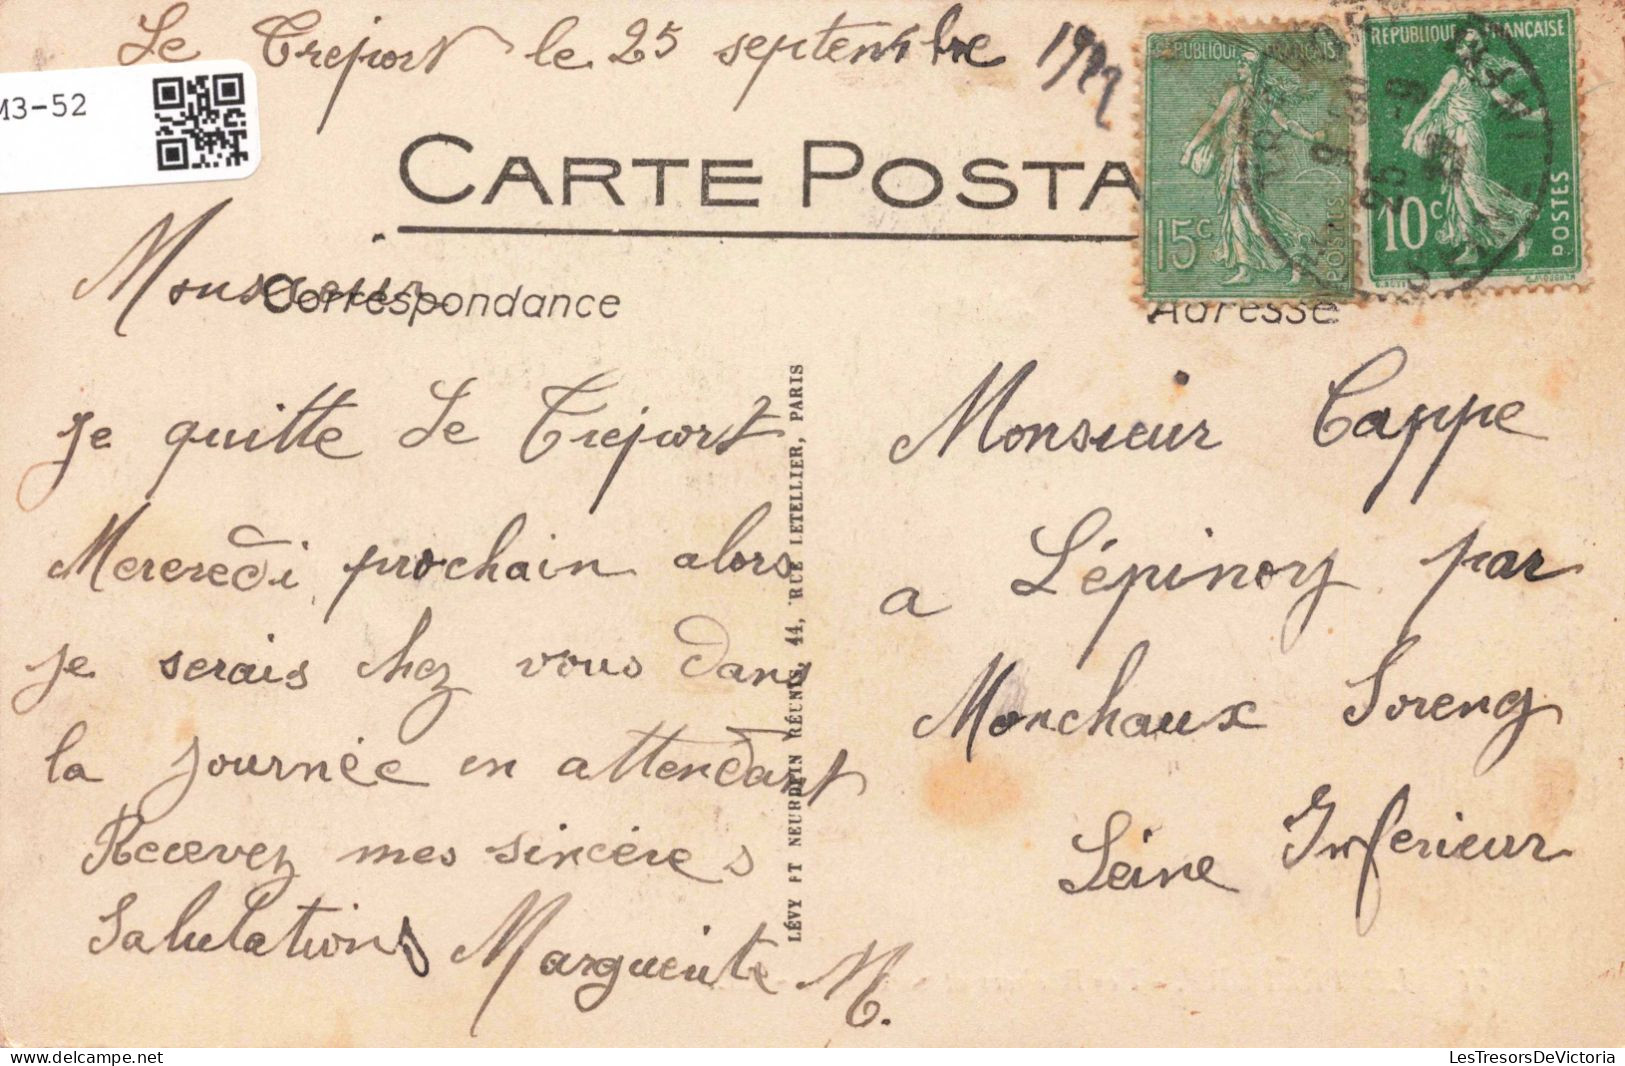 Le Treport le 25 septembre
M3-52
CARTE POSTA
REPUBLIQUE FRANÇAISE
15c
POSTES
REPUBLIQUE FRANÇAISE
10c
POSTES
Correspondance
Adresse
Monsieur
je quitte Le Treport
Mereredi prochain alors
je serais chez vous dans
la journée en attendant
Recevez mes sincères
Salutations Marguerite M.
LÉVY ET NEURDEIN RÉUNIS, 44, RUE LETELLIER, PARIS
Monsieur Cappe
a L'épinoy par
Monchaux Soreng
Séine Inferieur
LesTresorsDeVictoria